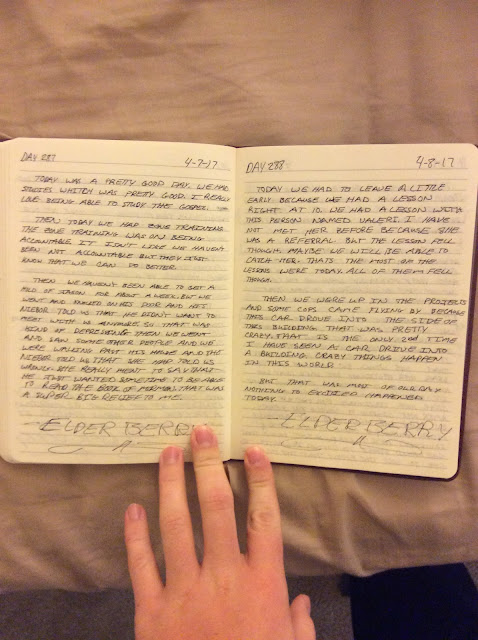 DAY 287 4-7-17
TODAY WAS A PRETTY GOOD DAY. WE HAD
STUDIES WHITCH WAS PRETTY GOOD. I REALLY
LOVE BEING ABLE TO STUDY THE GOSPEL.
THEN TODAY WE HAD ZONE TRAINING.
THE ZONE TRAINING WAS ON BEING
ACCOUNTABLE IT ISN'T LIKE WE HAVEN'T
BEEN NOT ACCOUNTABLE BUT THEY JUST
KNOW THAT WE CAN DO BETTER.
THEN WE HAVEN'T BEEN ABLE TO GET A
HOLD OF JASON FOR ABOUT A WEEK. BUT WE
WENT AND NOCKED ON HIS DOOR AND HIS
NIEBOR TOLD US THAT HE DIDN'T WANT TO
MEET WITH US ANYMORE. SO THAT WAS
KIND OF DEPRESSING THEN WE WENT
AND SAW SOME OTHER PEOPLE AND WE
WERE WALKING PAST HIS HOUSE AND THE
NIEBOR TOLD US THAT SHE HAD TOLD US
WRONG. SHE REALLY MENT TO SAY THAT
HE JUST WANTED SOME TIME TO BE ABLE
TO READ THE BOOK OF MORMON. THAT WAS
A SUPER BIG RELIEF TO ME.
ELDER BERRY
DAY 288 4-8-17
TODAY WE HAD TO LEAVE A LITTLE
EARLY BECAUSE WE HAD A LESSON
RIGHT AT 10. WE HAD A LESSON WITH
THIS PERSON NAMED VALERI. I HAVE
NOT MET HER BEFORE BECAUSE SHE
WAS A REFERRAL. BUT THE LESSON FELL
THOUGH. MAYBE WE WILL BE ABLE TO
CATCH HER. THATS THE MOST OF THE
LESSONS WERE TODAY ALL OF THEM FELL
THOUGH.
THEN WE WERE UP IN THE PROJECTS
AND SOME COPS CAME FLYING BY BECAUSE
THIS CAR DROVE INTO THE SIDE OF
THIS BUILDING THAT WAS PRETTY
CRAZY. THAT IS THE ONLY 2nd TIME
I HAVE SEEN A CAR DRIVE INTO
A BUILDING CRAZY THINGS HAPPEN
IN THIS WORLD.
BUT THAT WAS MOST OF OUR DAY
NOTHING TO EXCITED HAPPENED
TODAY.
ELDER BERRY